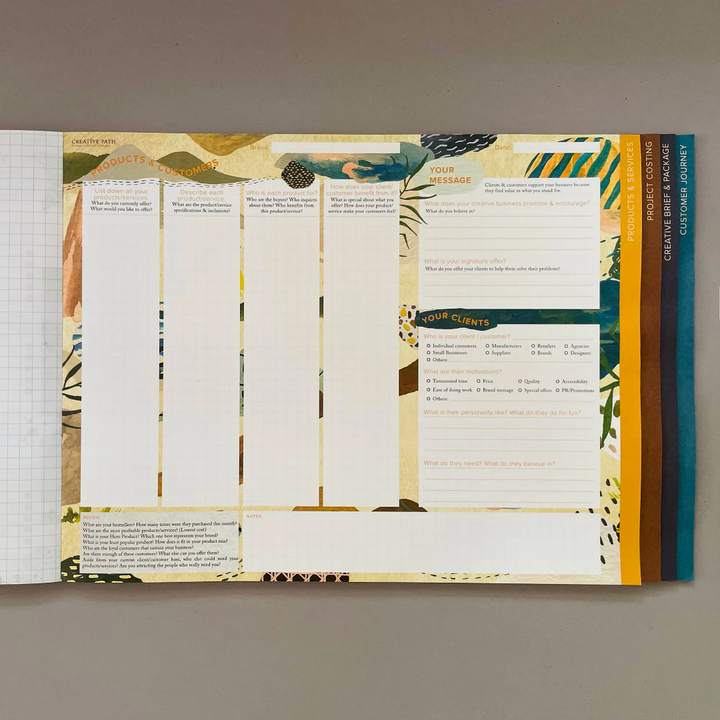 CREATIVE PATH
Brand:
Date:
PRODUCTS & CUSTOMERS
List down all your
products/services.
What do you currently offer?
What would you like to offer?
Describe each
product/service.
What are the product/service
specifications & inclusions?
Who is each product for?
Who are the buyers? Who inquires
about them? Who benefits from
this product/service?
How does your client/
customer benefit from it?
What is special about what you
offer? How does your product/
service make your customers feel?
YOUR
MESSAGE
Clients & customers support your business because
they find value in what you stand for.
What does your creative business promote & encourage?
What do you believe in?
What is your signature offer?
What do you offer your clients to help them solve their problems?
YOUR CLIENTS
Who is your client / customer?
Individual consumers
Manufacturers
Retailers
Agencies
Small Businesses
Suppliers
Brands
Designers
Others:
What are their motivations?
Turnaround time
Price
Quality
Accessibility
Ease of doing work
Brand message
Special offers
PR/Promotions
Others:
What is their personality like? What do they do for fun?
What do they need? What do they believe in?
REVIEW:
What are your bestsellers? How many times were they purchased this month?
What are the most profitable products/services? (Lowest cost)
What is your Hero Product? Which one best represents your brand?
What is your least popular product? How does it fit in your product mix?
Who are the loyal customers that sustain your business?
Are there enough of these customers? What else can you offer them?
Aside from your current client/customer base, who else could need your
products/services? Are you attracting the people who really need you?
NOTES:
PRODUCTS & SERVICES
PROJECT COSTING
CREATIVE BRIEF & PACKAGE
CUSTOMER JOURNEY